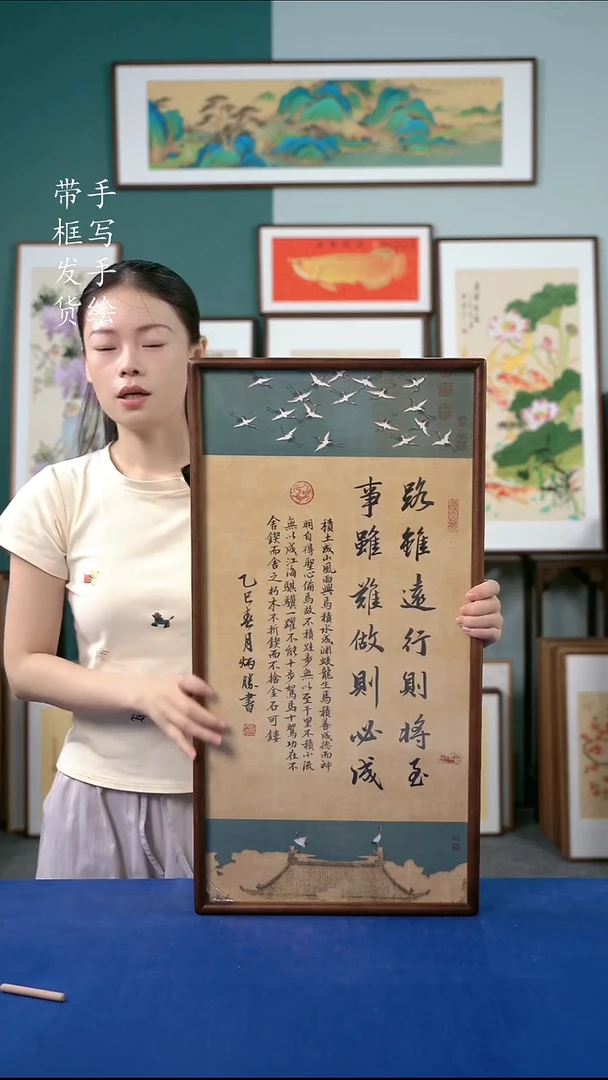 手写手绘
带框发货
路雖遠行則將至
事雖難做則必成
積土成山風雨興焉積水成淵蛟龍生焉積善成德而神
明自得聖心備焉故不積跬步無以至千里不積小流
無以成江海騏驥一躍不能十步駑馬十駕功在不
舍鍥而舍之朽木不折鍥而不捨金石可鏤
乙巳春月炳勝書